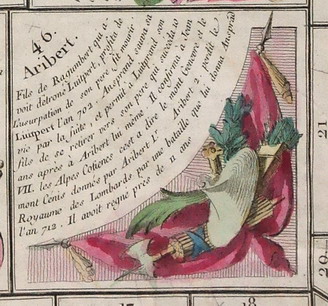 46.
Aribert.
Fils de Ragumbert qui a-
voit détroné Luitpert, profita de
l'usurpation de son pere fit mourir
Luitpert l'an 702. Ansprand sauva sa
vie par la fuite, et permit à Luitprand son
fils de se retirer vers son pere qui succeda 10
ans après à Aribert lui même. Il confirma à Jean
VII. les Alpes Cotienes cest a dire le mont Genevre et le
mont Cenis donnés par Aribert 1er Aribert 2 perdit le
Royaume des Lombards par une bataille que lui donna Ansprand
l'an 712. Il avoit regné près de 11 ans
17
18
21
20